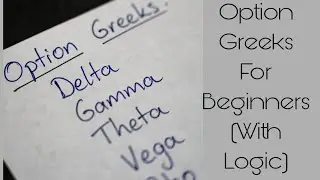 Option Greeks.
Delta
Gamma
Theta
Vega
Option
Greeks
For
Beginners
(With
Logic)